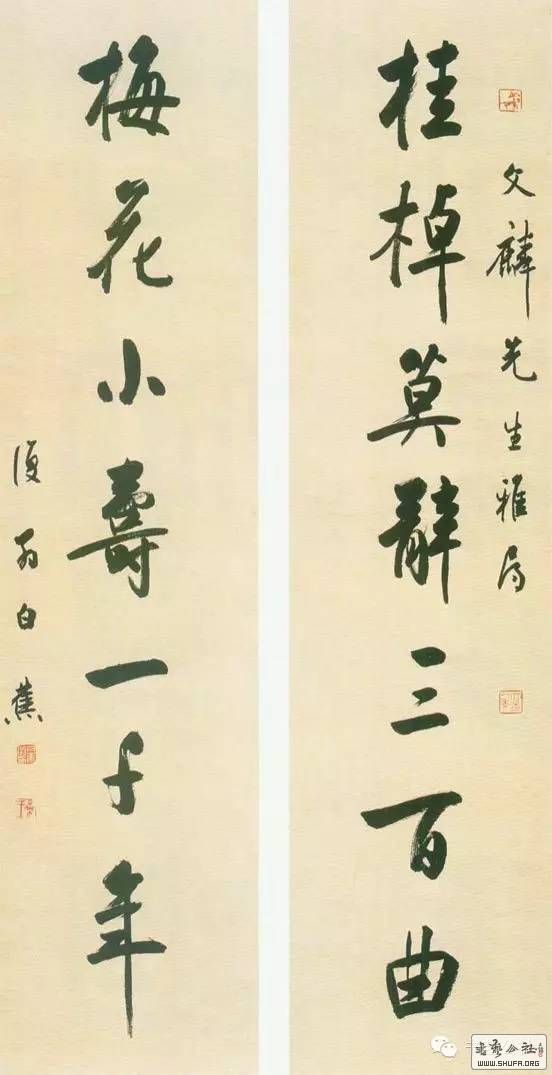 文麟先生雅屬
桂棹莫辭三百曲
梅花小壽一千年
復翁白蕉
书艺公社
WWW.SHUFA.ORG